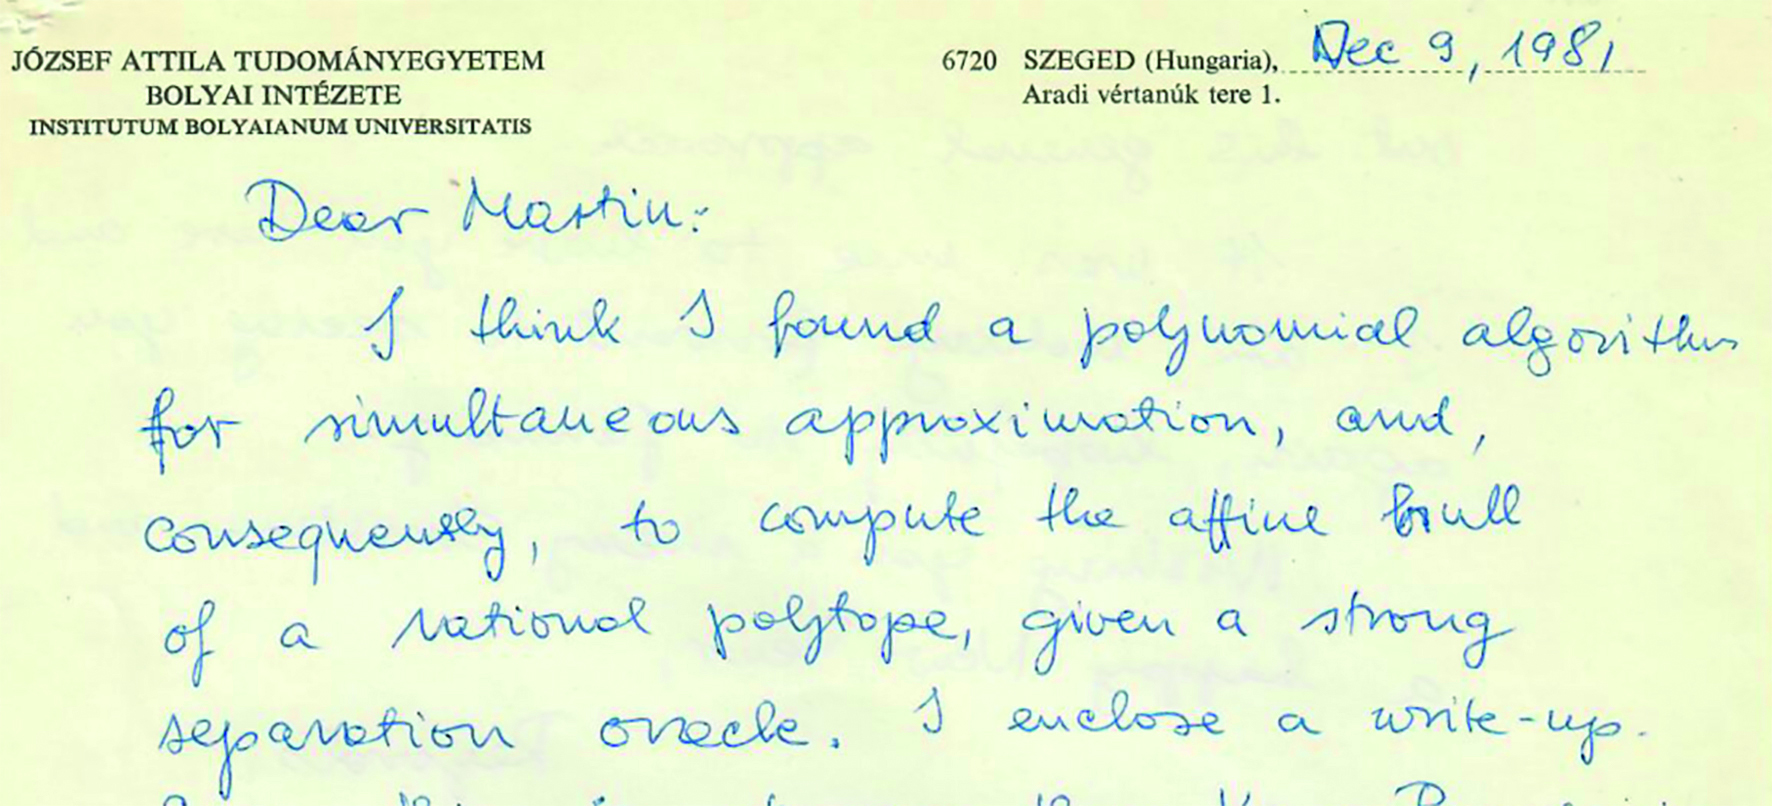 JÓZSEF ATTILA TUDOMÁNYEGYETEM
BOLYAI INTÉZETE
INSTITUTUM BOLYAIANUM UNIVERSITATIS
6720 SZEGED (Hungaria), Dec 9, 1981
Aradi vértanúk tere 1.
Dear Martin:
I think I found a polynomial algorithm
for simultaneous approximation, and,
consequently, to compute the affine hull
of a rational polytope, given a strong
separation oracle. I enclose a write-up.